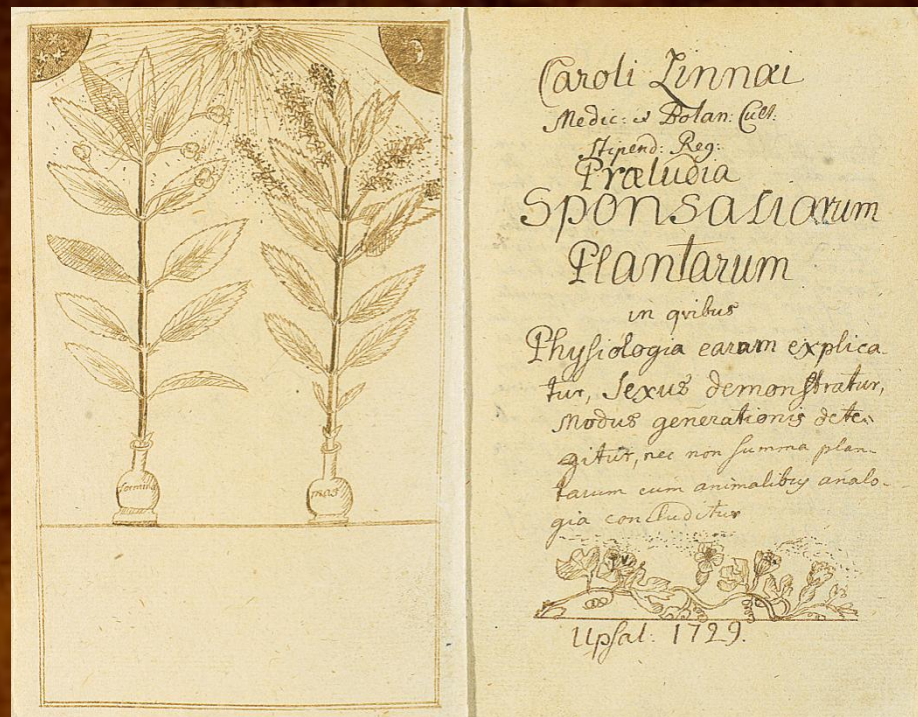 femina
mas
Caroli Linnæi
Medic: et Botan: Cult:
Stipend: Reg:
Præludia
Sponsaliorum
Plantarum
in qvibus
Physiologia earum explica-
tur, Sexus demonstratur,
Modus generationis dete-
gitur, nec non summa plan-
tarum cum animalibus analo-
gia concluditur
Upsal: 1729.